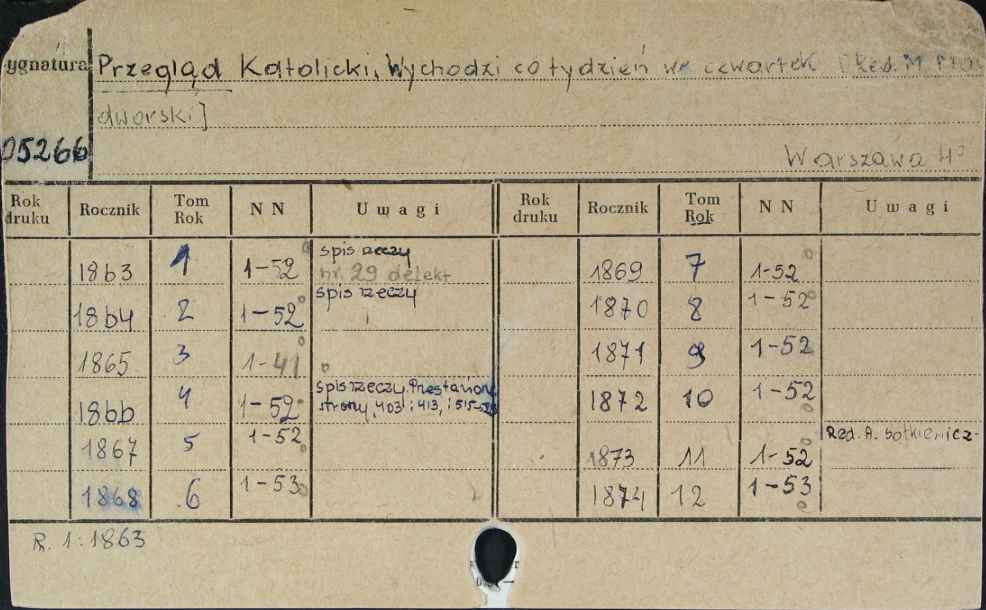 Sygnatura Przegląd Katolicki, Wychodzi co tydzień we czwartek [Red. M.
dworski]
05266
Warszawa 4°
Rok druku Rocznik Tom Rok N N Uwagi Rok druku Rocznik Tom Rok N N Uwagi
1863 1 1-52 spis rzeczy nr. 29 defekt 1869 7 1-52
1864 2 1-52 spis rzeczy 1870 8 1-52
1865 3 1-41 1871 9 1-52
1866 4 1-52 spis rzeczy. strony, 403 i 413, i 515- 1872 10 1-52
1867 5 1-52 1873 11 1-52 Red. A.
1868 6 1-53 1874 12 1-53
R. 1:1863